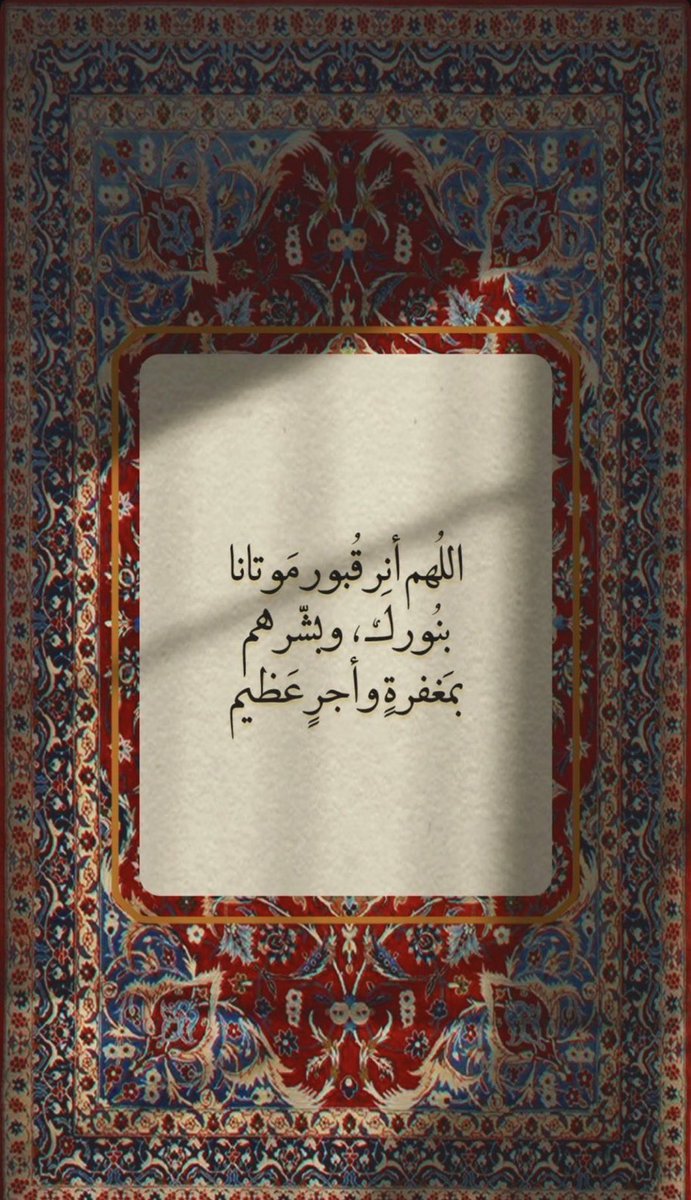 اللُهم أنِر قُبور مَوتانا
بنُورك، وبشّرهم
بمَغفرةٍ وأجرٍ عَظيم